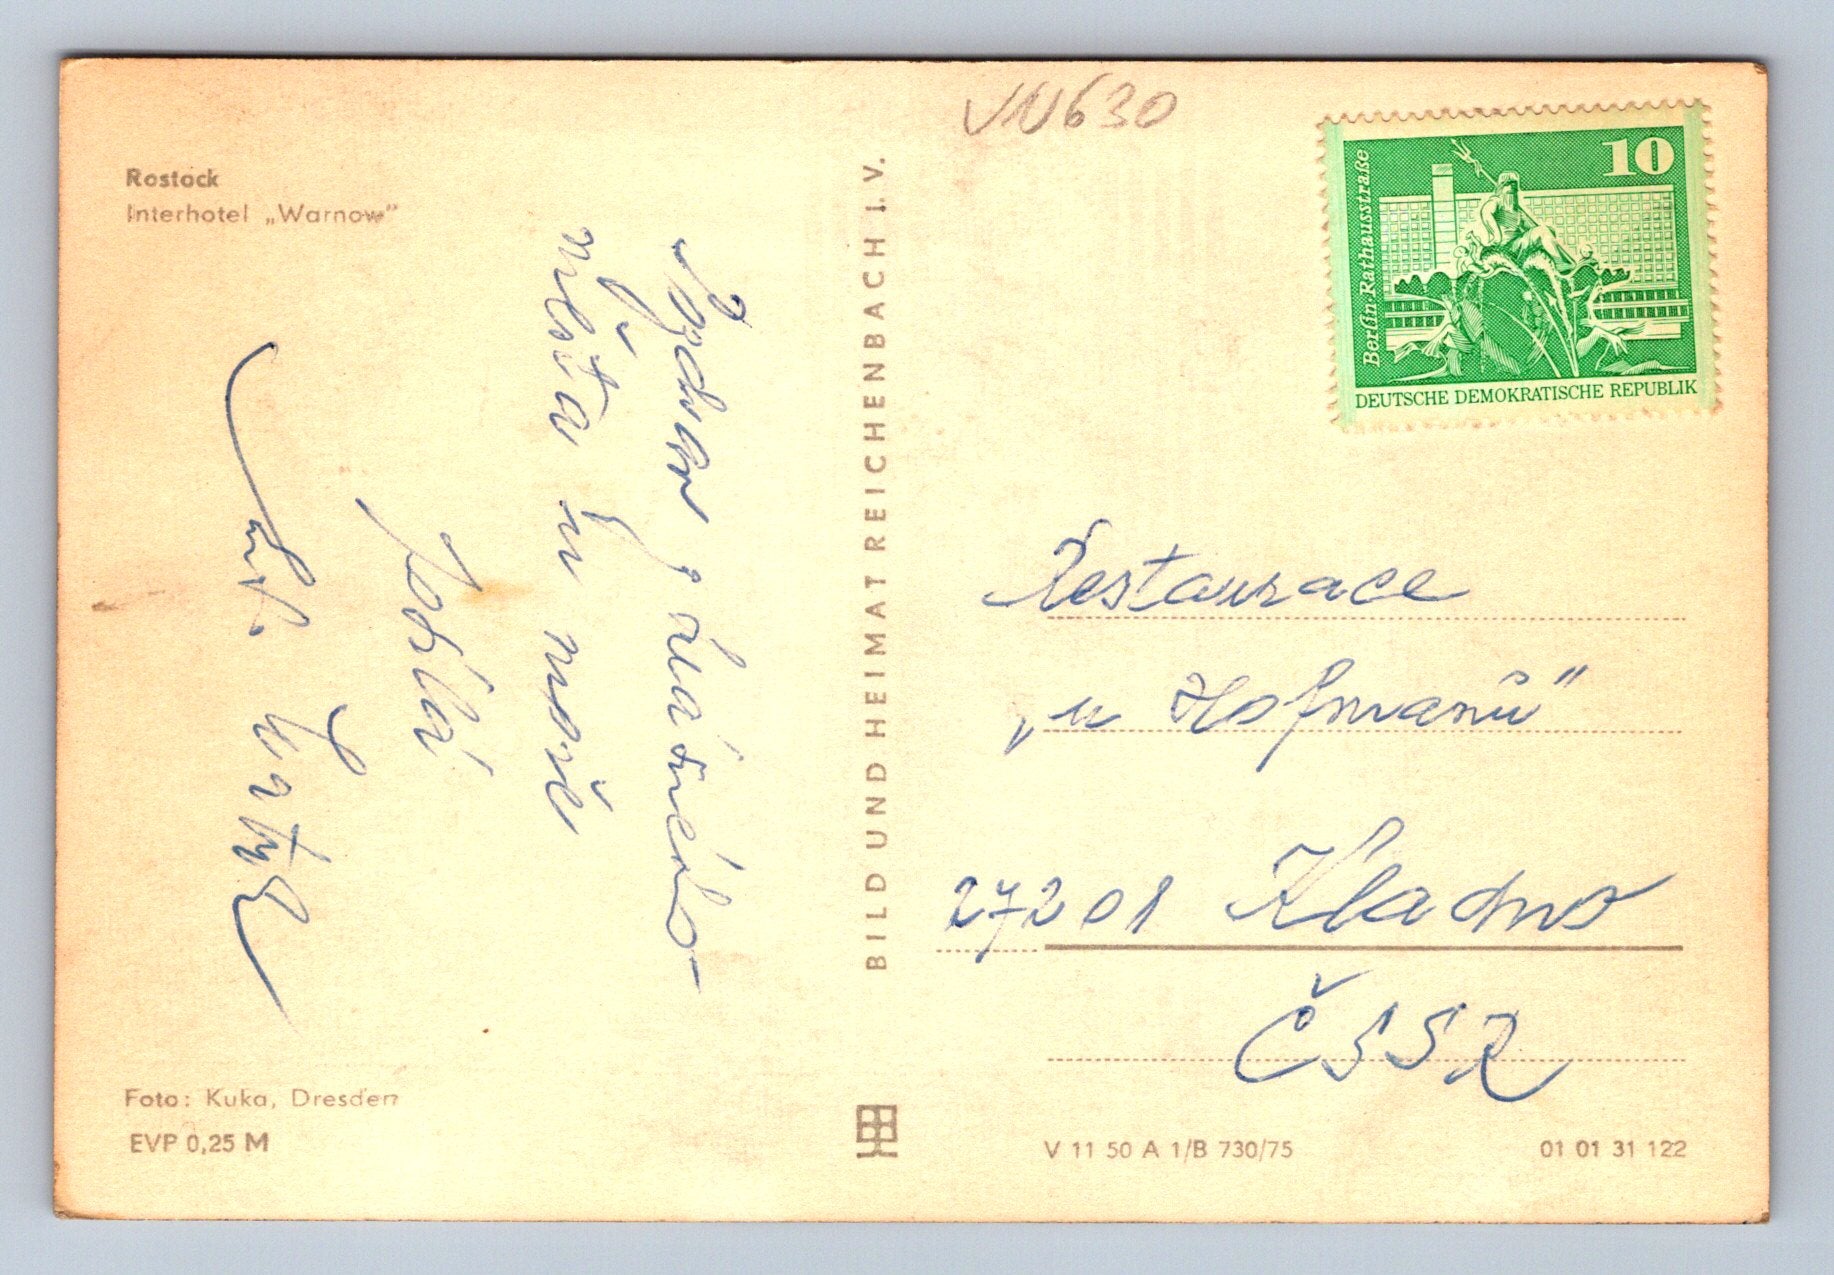 VN630
Rostock
Interhotel „Warnow”
Pozdrav z
města u moře
posílá
BILD UND HEIMAT REICHENBACH I. V.
10
Berlin-Rathausstraße
DEUTSCHE DEMOKRATISCHE REPUBLIK
Restaurace
„u Hofmanů"
27201 Kladno
ČSSR
Foto: Kuka, Dresden
EVP 0,25 M
V 11 50 A 1/B 730/75
01 01 31 122